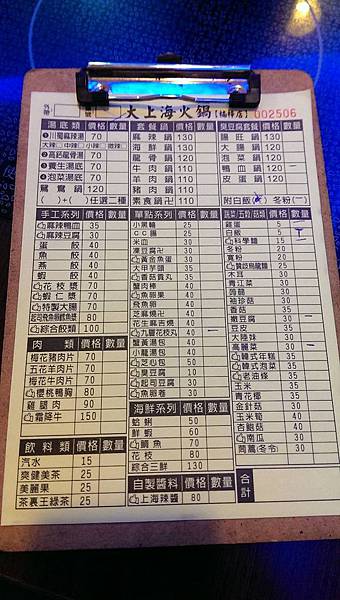 外帶
大上海火鍋(楊梅店) 002506
湯底類 價格 數量
❶川蜀麻辣湯 70
大辣□中辣 小辣 微辣
❷高鈣龍骨湯 70
❸養生湯底 70
❹泡菜湯底 70
鴛鴦鍋 120
( )+( )任選二種
套餐鍋 價格 數量
麻辣鍋 130
海鮮鍋 130
龍骨鍋 110
牛肉鍋 110
羊肉鍋 110
豬肉鍋 110
素食鍋卍 110
臭豆腐套餐鍋 價格 數量
腸旺鍋 120
大腸鍋 120
泡菜鍋 120
鴨血鍋 120 一
皮蛋鍋 120
附白飯( ) 冬粉(一)
手工系列 價格 數量
麻辣鴨血 35
麻辣豆腐 30
蛋餃 40
魚餃 40
燕餃 40
蝦餃 40
花枝漿 70
蝦仁漿 70
特製大腸 70
起司飛魚卵鱈魚漿 80
綜合餃類 100
肉類 價格 數量
梅花豬肉片 70
五花羊肉片 70
梅花牛肉片 70
櫻桃鴨胸 80
雞腿肉 90
霜降牛 150
飲料類 價格 數量
汽水 15
爽健美茶 25
美麗果 25
茶裏王綠茶 25
單點系列 價格 數量
小黑輪 25
CC腸 25
米血 30
凍豆腐卍 30
黃金魚蛋 30
大甲芋頭 35
香菇貢丸 35
蟹肉棒 40
魚卵果 40
飛魚卵 40
芝麻燒卍 40
花生麻吉燒 40
九層花枝丸 40 一
蟹黃湯包 40
小龍湯包 40
芝心包 50
臭豆腐 10
起司豆腐 30
魚卵卷 30
海鮮系列 價格 數量
蛤蜊 50
鮮蝦 60
鯛魚 70
花枝 80
綜合三鮮 130
自製醬料 價格 數量
上海辣醬 80
蔬菜/五穀/菇類 價格 數量
雞蛋 5
白飯 5
科學麵 15
冬粉 20
寬粉 20
木耳 30
青江菜 30
茼蒿 30
袖珍菇 30
香菇 35
嫩豆腐 30 一
豆皮 35
大陸妹 30
高麗菜 30 一
韓式年糕 35
韓式泡菜 35
老油條 35
玉米 35
青花椰 35
金針菇 30
玉米筍 40
杏鮑菇 40
南瓜 30
茼蒿(冬令) 30
合計